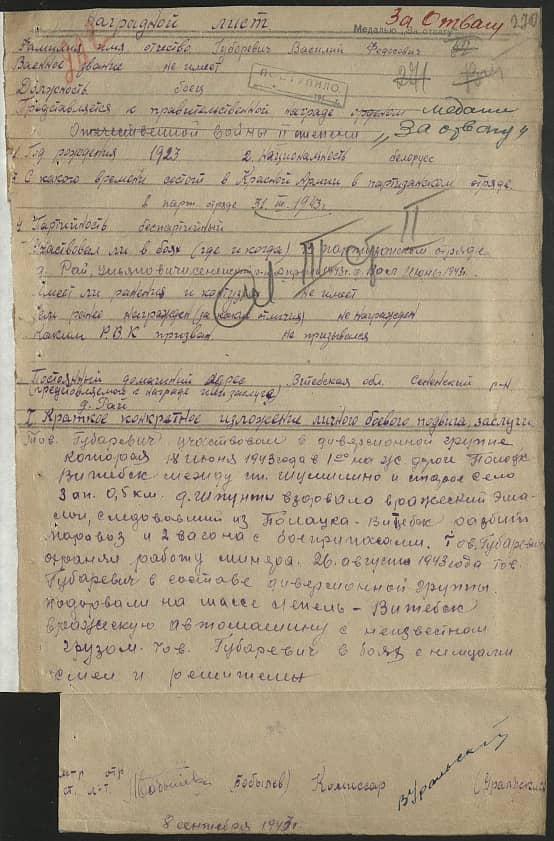 Наградной лист
За Отвагу
Медалью „За отвагу"
270
Фамилия имя, отчество Губаревич Василий Федосович
Военное звание не имеет
ПОСТУПИЛО
Должность боец
Представляется к правительственной награде орденом медали
Отечественной войны II степени „За отвагу"
1 Год рождения 1923 2. Национальность белорус
3 С какого времени состоит в Красной Армии в партизанском отряде
в парт. отряде 31. III. 1943г.
4 Партийность беспартийный
Участвовал ли в боях (где и когда) В партизанском отряде
д. Рай, Ульяновичи 1943г.
Имеет ли ранения и контузии не имеет
Чем ранее награжден (за какие отличия) не награжден
Каким Р.В.К призван не призывался
Постоянный домашний адрес Витебская обл. Сенненский р-н
(представляемого к награде
д. Рай
I. Краткое конкретное изложение личного боевого подвига, заслуги
Тов. Губаревич участвовал в диверсионной группе
которая 18 июня 1943 года в на ж.д. дороги Полоцк
Витебск между ст. Шумилино и старое село
3 ап. 0,5 км. д. Шпунты взорвала вражеский эша-
лон, следовавший из Полацка - Витебск разбит
паровоз и 2 вагона с боеприпасами. Тов. Губаревич
охранял работу минера. 26 августа 1943 года тов.
Губаревич в составе диверсионной группы
подорвали на шассе Лепель - Витебск
вражескую автомашину с неизвестном
грузом. тов. Губаревич в боях с немцами
смел и решителен
ст. л-т. Бобылев) Комиссар (Уральский
8 сентября 1943г.